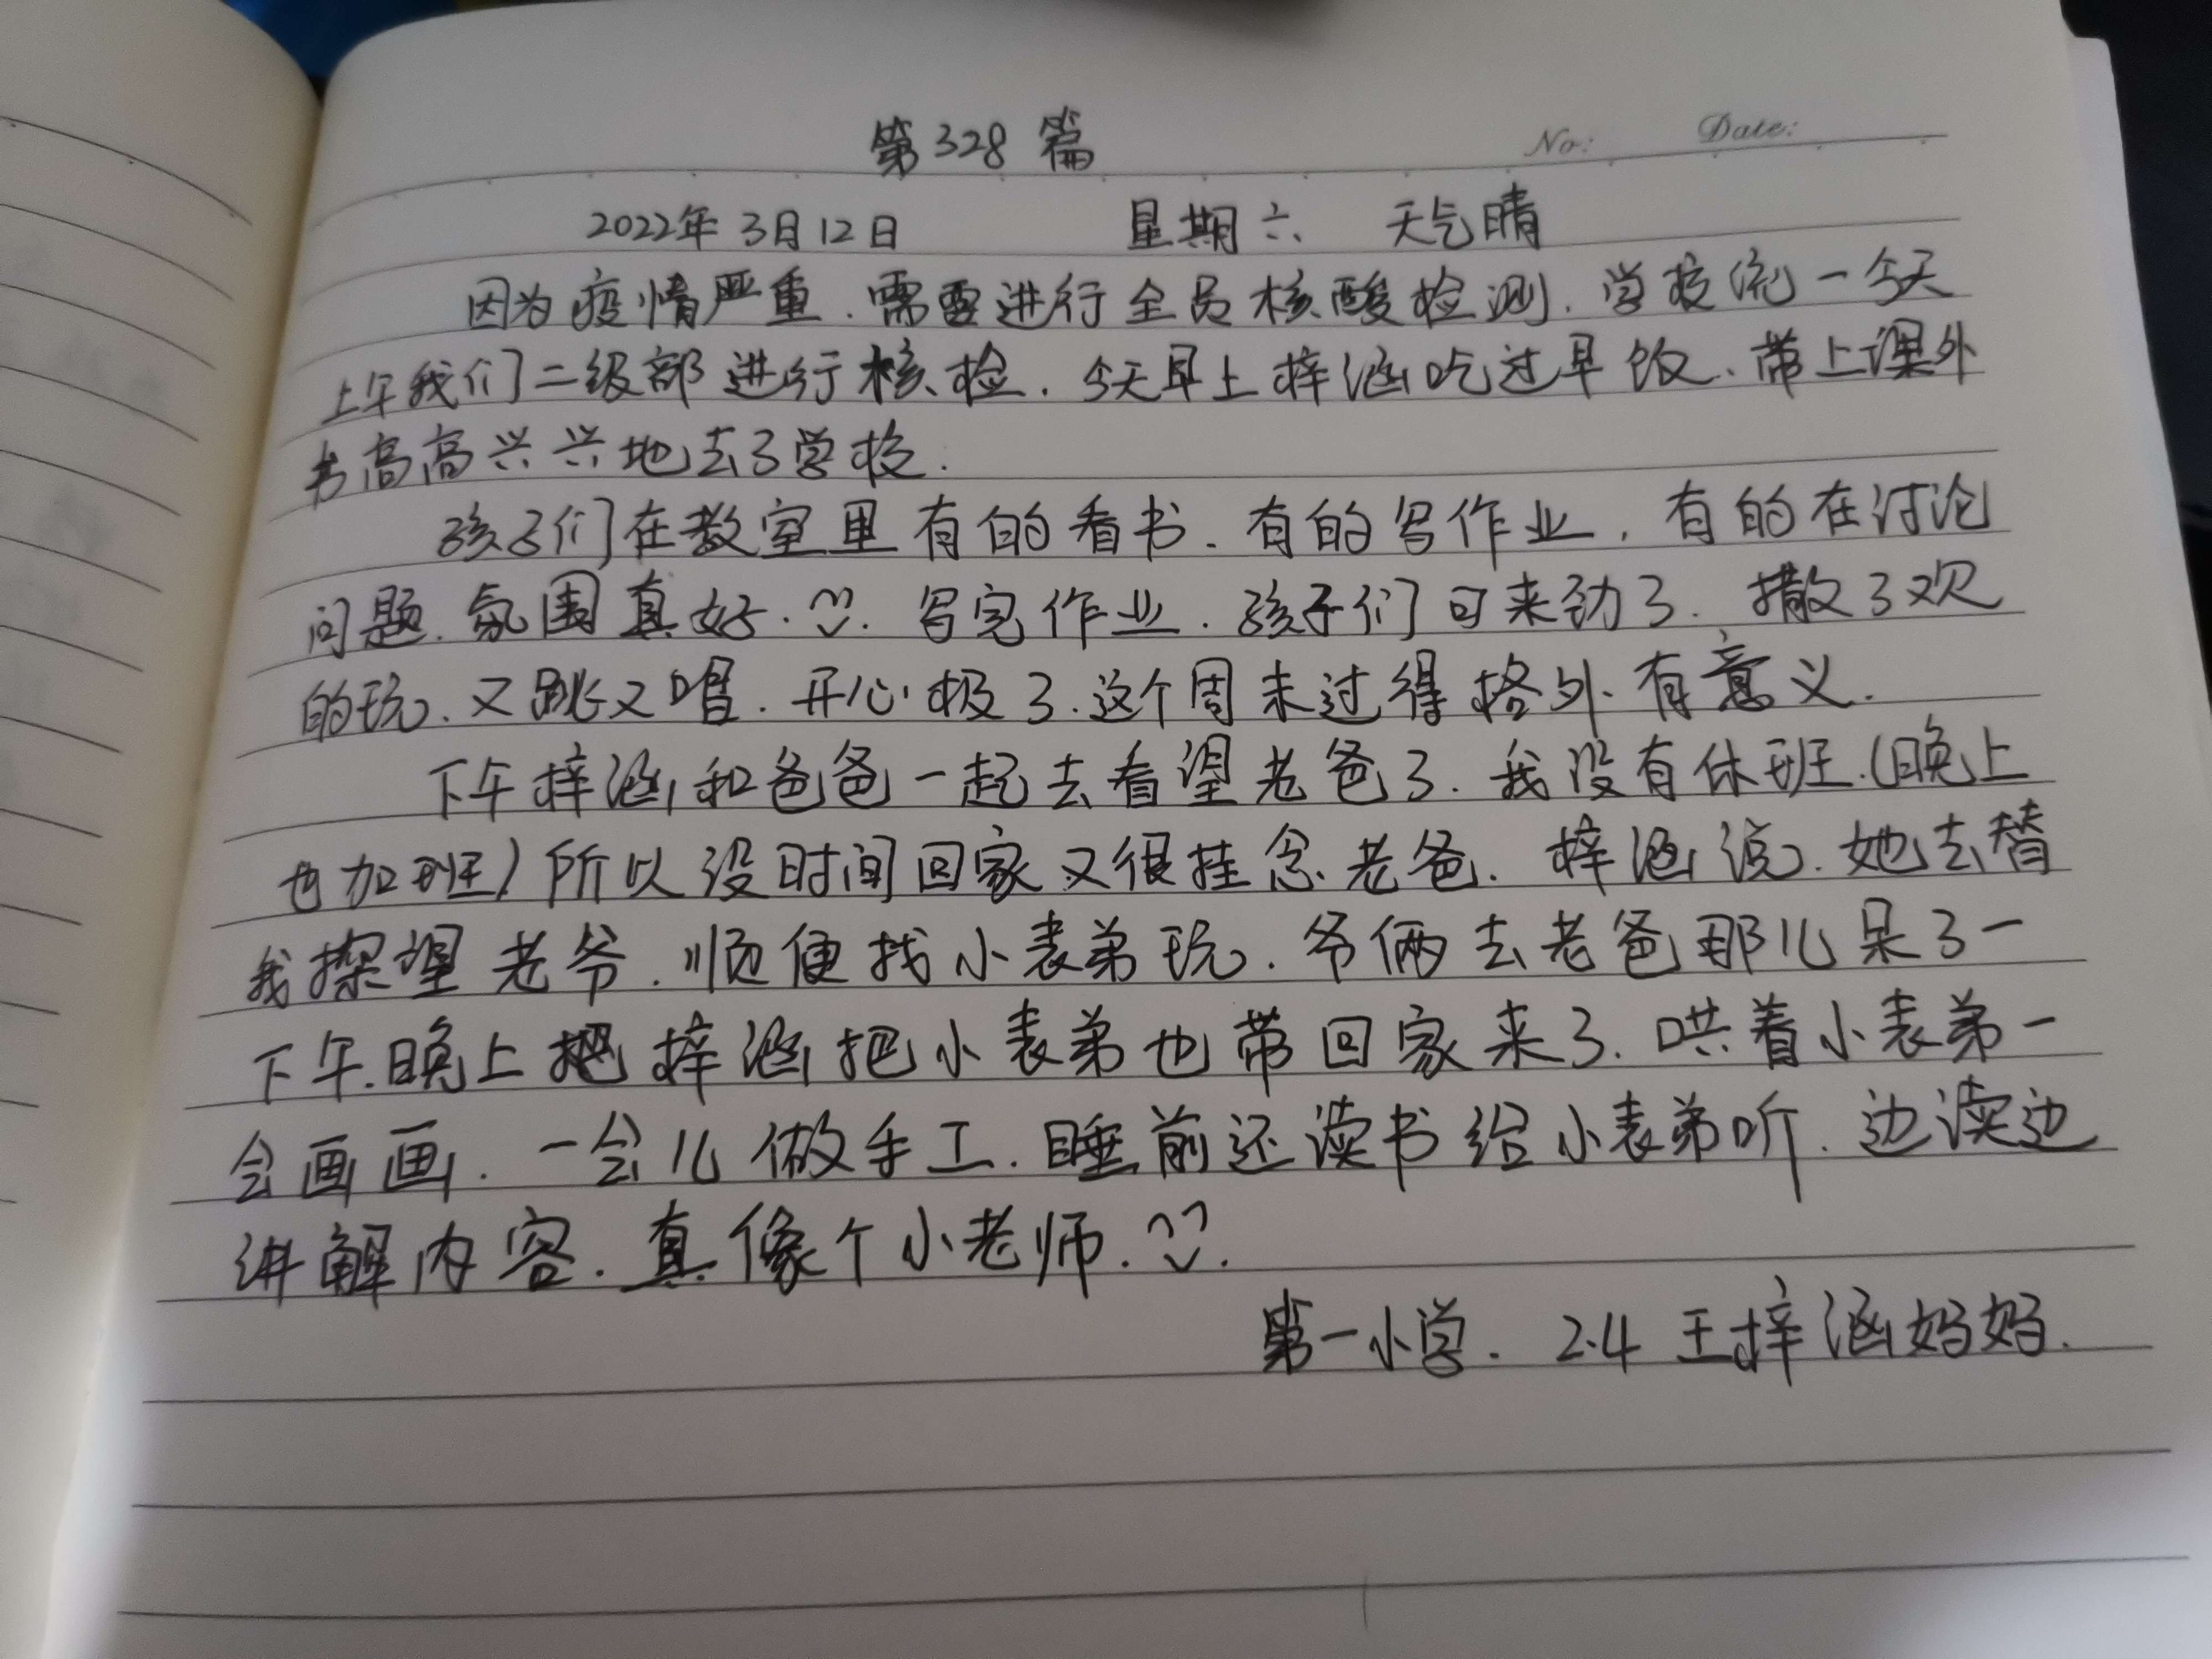 第328篇
No: Date:
2022年3月12日 星期六 天气晴
因为疫情严重.需要进行全员核酸检测.学校统一今天
上午我们二级部进行核检.今天早上梓涵吃过早饭、带上课外
书高高兴兴地去了学校.
孩子们在教室里有的看书、有的写作业,有的在讨论
问题.氛围真好.写完作业.孩子们可来劲了.撒了欢
的玩.又跳又唱.开心极了.这个周末过得格外有意义.
下午梓涵和爸爸一起去看望老爸了.我没有休班.(晚上
也加班)所以没时间回家又很挂念老爸.梓涵说.她去替
我探望老爷.顺便找小表弟玩.爷俩去老爸那儿呆了一
下午.晚上把梓涵把小表弟也带回家来了.哄着小表弟一
会画画.一会儿做手工.睡前还读书给小表弟听.边读边
讲解内容.真像个小老师.
第一小学. 2.4 王梓涵妈妈.